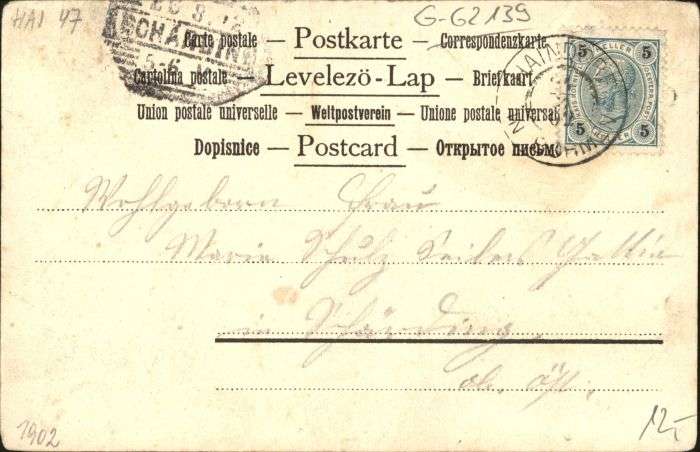 HAI 47
G-G2139
SCHÄRDING
5-6
Carte postale — Postkarte — Correspondenzkarte
Cartolina postale — Levelező-Lap — Briefkaart
Union postale universelle — Weltpostverein — Unione postale universale
Dopisnice — Postcard — Открытое письмо
5 5
HELLER
5 5
Wohlgeborn Frau
Marie Schulz Seilers Gattin
in Schärding
ob. Öst.
1902
12,-